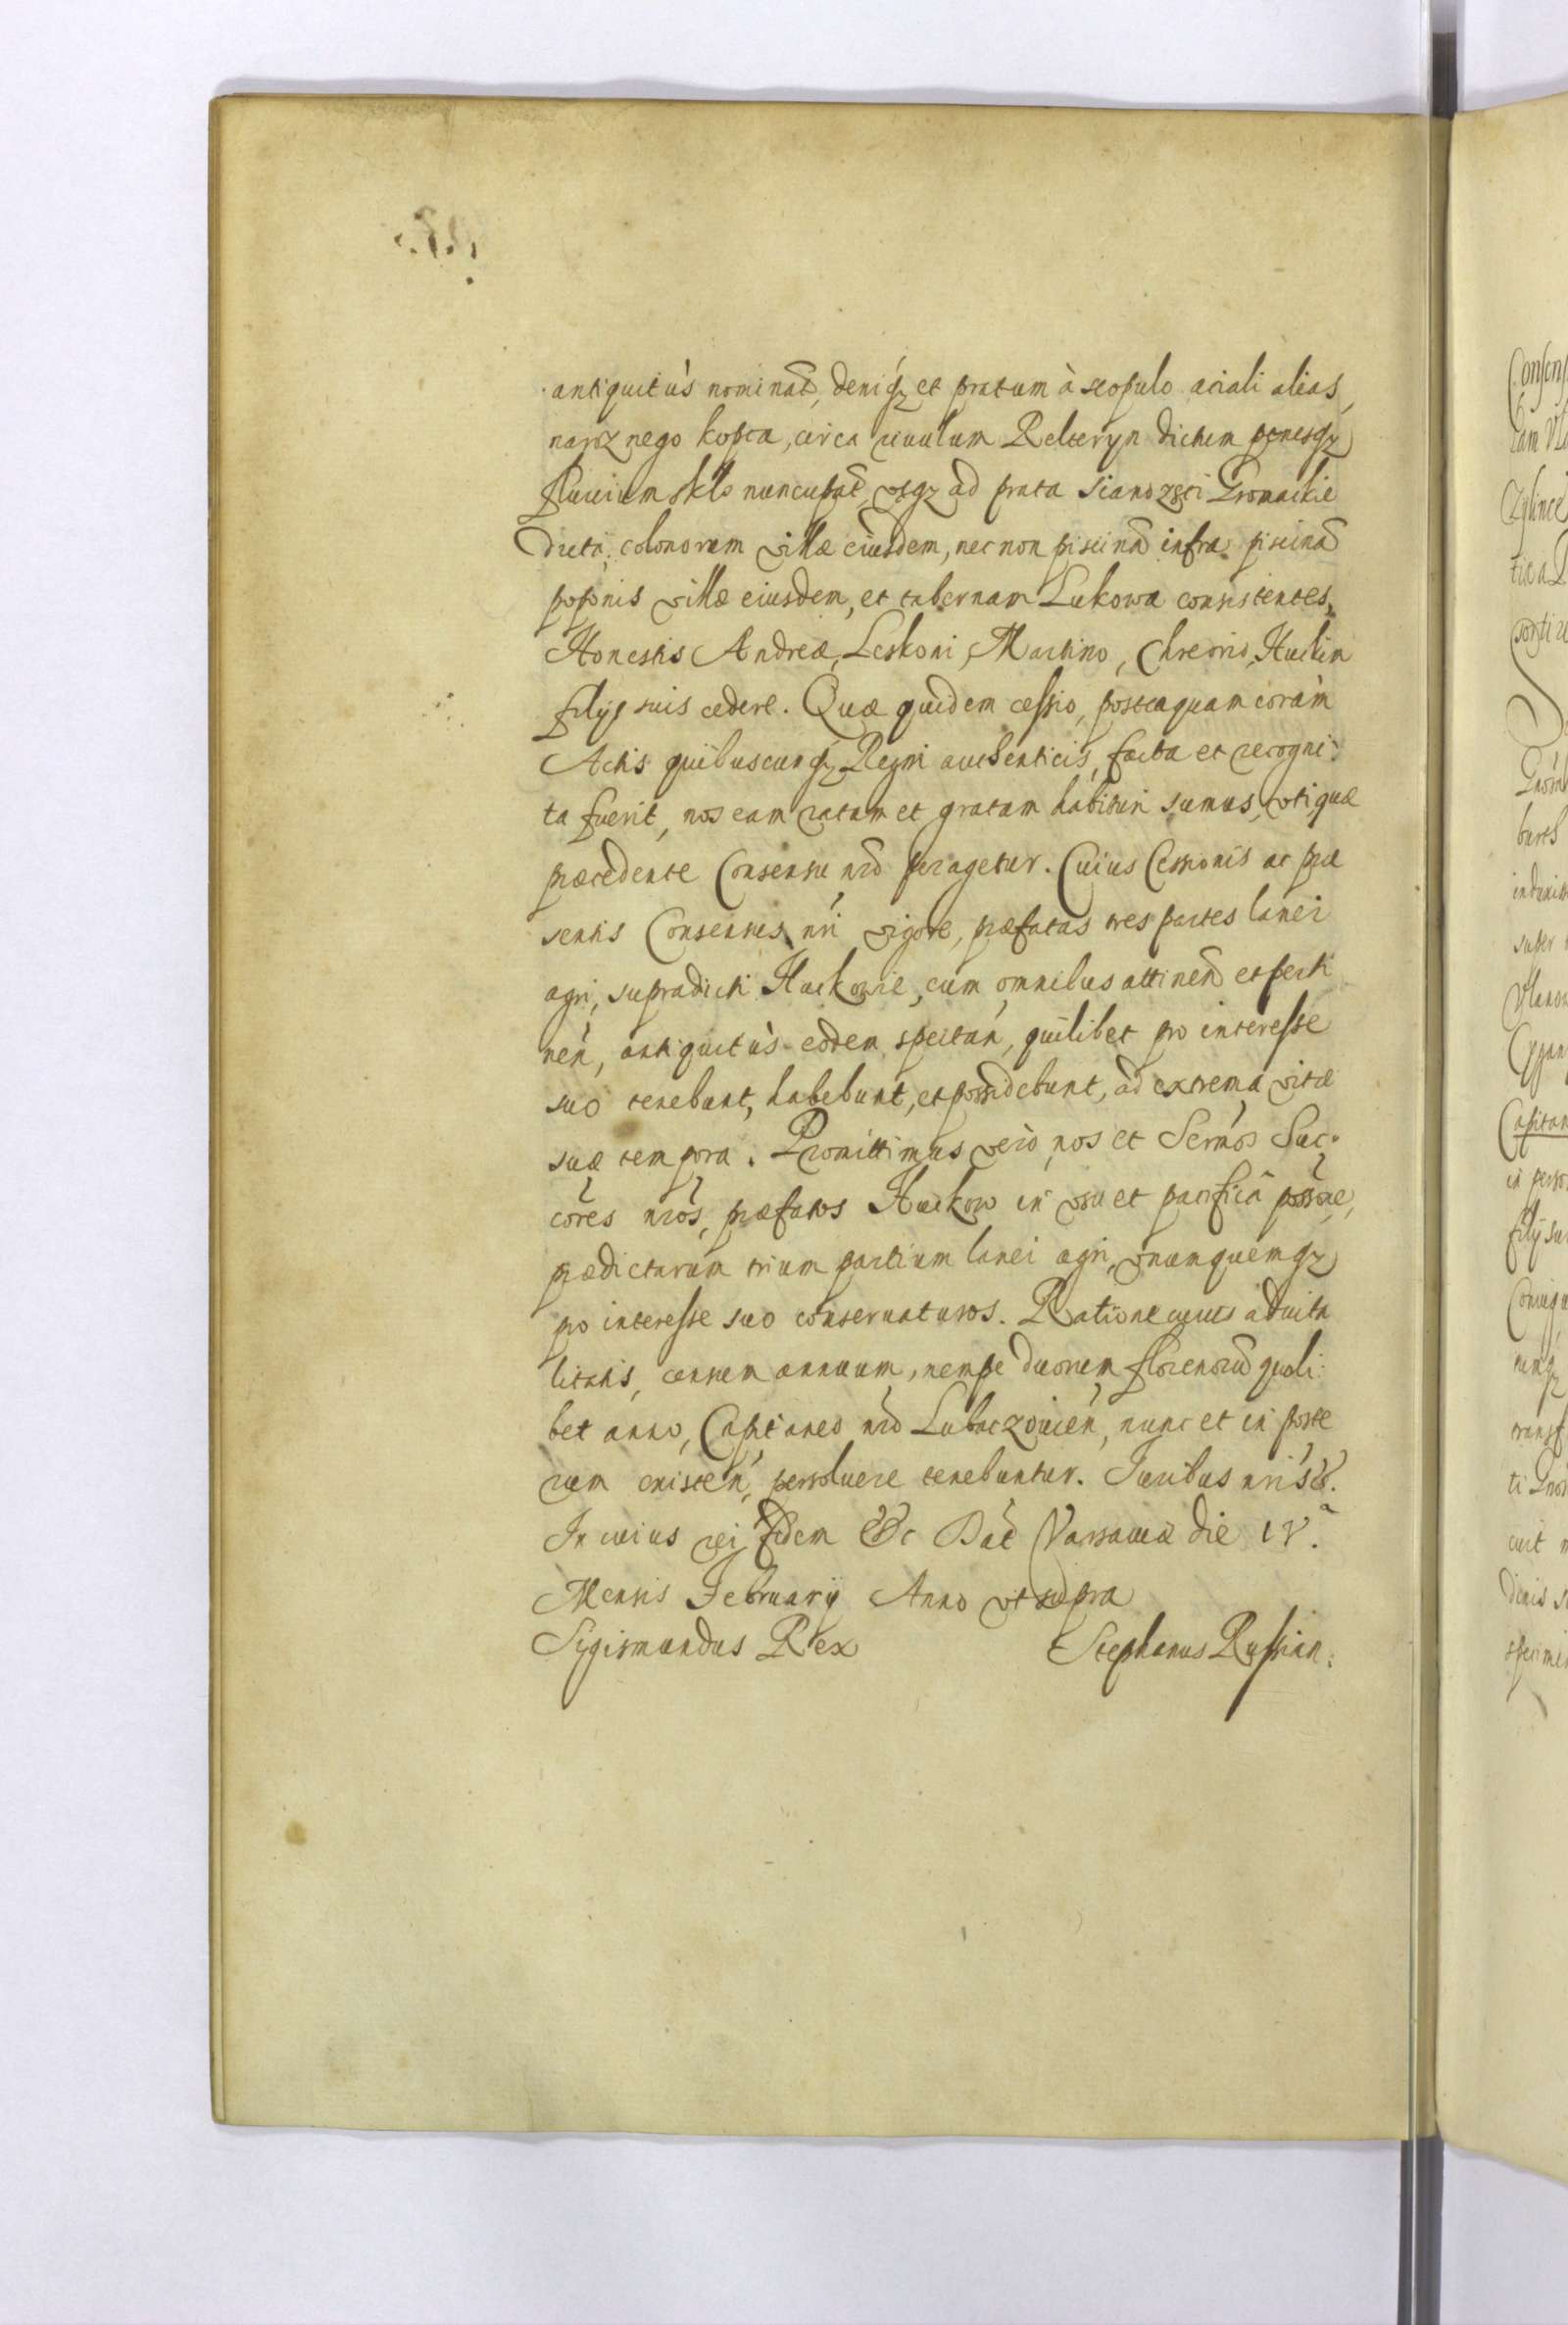 antiquitùs nominat̃, deniq₃ et pratum à scopulo aciali alias,
narożnego kopca, circa riuulum Relteryn dictum penesq₃
fluuium skło nuncupat̃, vsq₃ ad prata Sianożęci Gromackie
dicta, colonorum villæ eiusdem, nec non piscinã infra piscinã
poponis villæ eiusdem, et tabernam Lukowa consistentes,
Honestis Andreæ, Leskoni, Martino, Chreorio, Huckin
filijs suis cedere. Quæ quidem cessio, posteaquam coràm
Actis quibuscunq₃ Regni authenticis, facta et recogni:
ta fuerit, nos eam ratam et gratam habituri sumus, vti quæ
præcedente Consensu nro peragetur. Cuius Cessionis ac præ
sentis Consensus nri vigore, præfatas tres partes lanei
agri, supradicti Huckowie, cum omnibus attinen̄ et perti
nen̄, antiquitùs eodem spectan̄, quilibet pro interesse
suo tenebunt, habebunt, et possidebunt, ad extrema vitæ
suæ tempora. Promittimus verò, nos et Sermos Suc:
cores nros, præfatos Huckow in vsu et pacifica possne,
prædictarum trium partium lanei agri, vnumquemq₃
pro interesse suo conseruaturos. Ratione cuius aduita
litatis, censum annuum, nempe duorum florenorũ quoli:
bet anno, Capitaneo nro Lubaczouien̄, nunc et in poste
rum existen̄, persoluere tenebuntur. Iuribus nris &.
In cuius rei fidem &c Dat̃ Varsauiæ die 15.ª
Mensis February Anno vt supra
Sygismundus Rex Stephanus Russian: